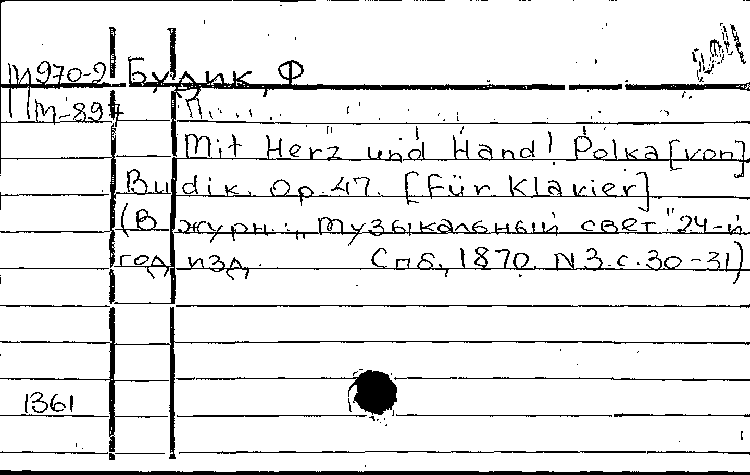 2011
М970-2 Будик, Ф
М-897
Mit Herz und Hand! Polka [von]
Budik. Op. 47. [Für Klavier]
(В журн.: „Музыкальный свет" 24-й
год изд. Спб., 1870 N 3. с. 30-31)
1361